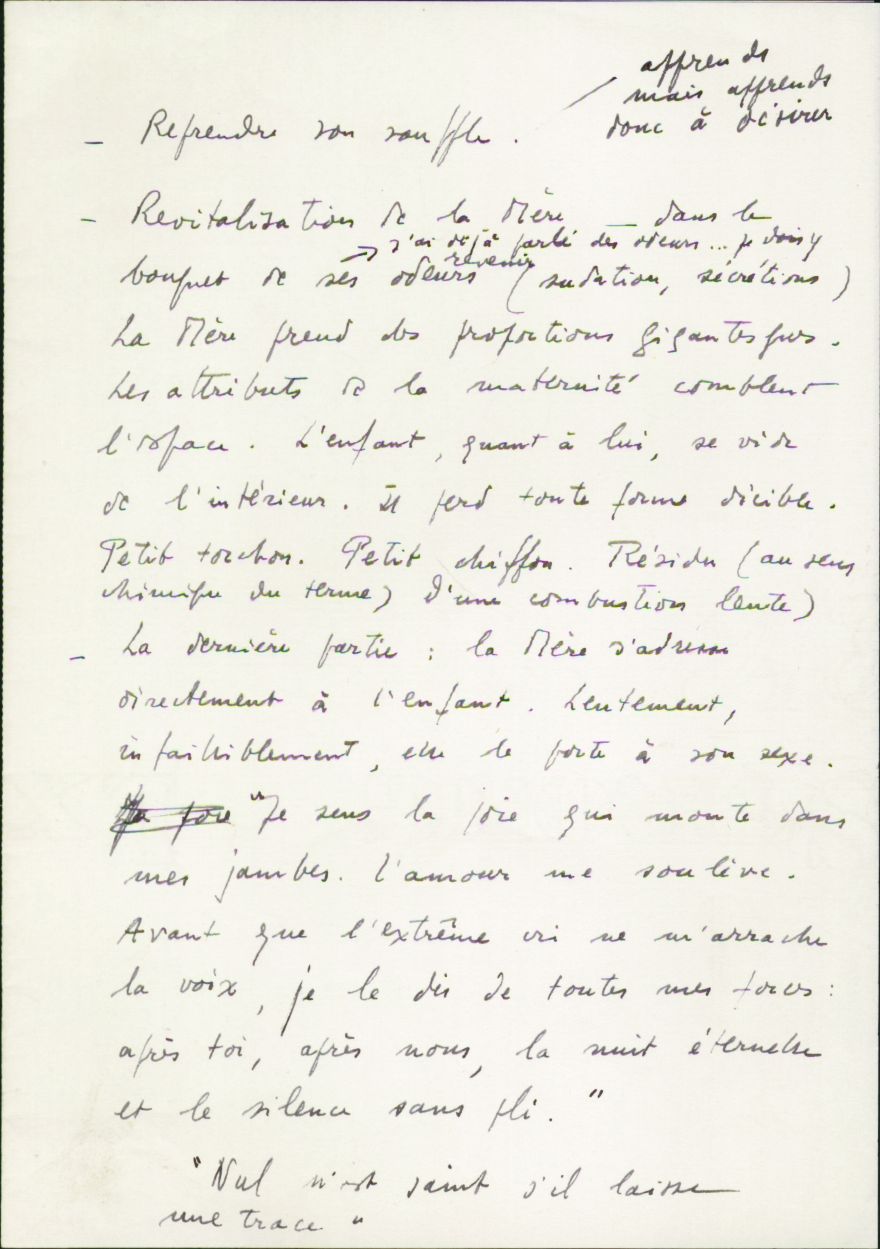 apprends
mais apprends
donc à désirer
- Reprendre son souffle.
- Revitalisation de la Mère — dans le
→ j'ai déjà parlé des odeurs... je dois y
revenir
bouquet de ses odeurs (sudation, sécrétions)
La Mère prend des proportions gigantesques.
Les attributs de la maternité comblent
l'espace. L'enfant, quant à lui, se vide
de l'intérieur. Il perd toute forme dicible.
Petit torchon. Petit chiffon. Résidu (au sens
chimique du terme) d'une combustion lente)
- La dernière partie : la Mère s'adresse
directement à l'enfant. Lentement,
infailliblement, elle le porte à son sexe.
"Je sens la joie qui monte dans
mes jambes. L'amour me soulève.
Avant que l'extrême cri ne m'arrache
la voix, je le dis de toutes mes forces :
après toi, après nous, la nuit éternelle
et le silence sans pli."
"Nul n'est saint s'il laisse
une trace"